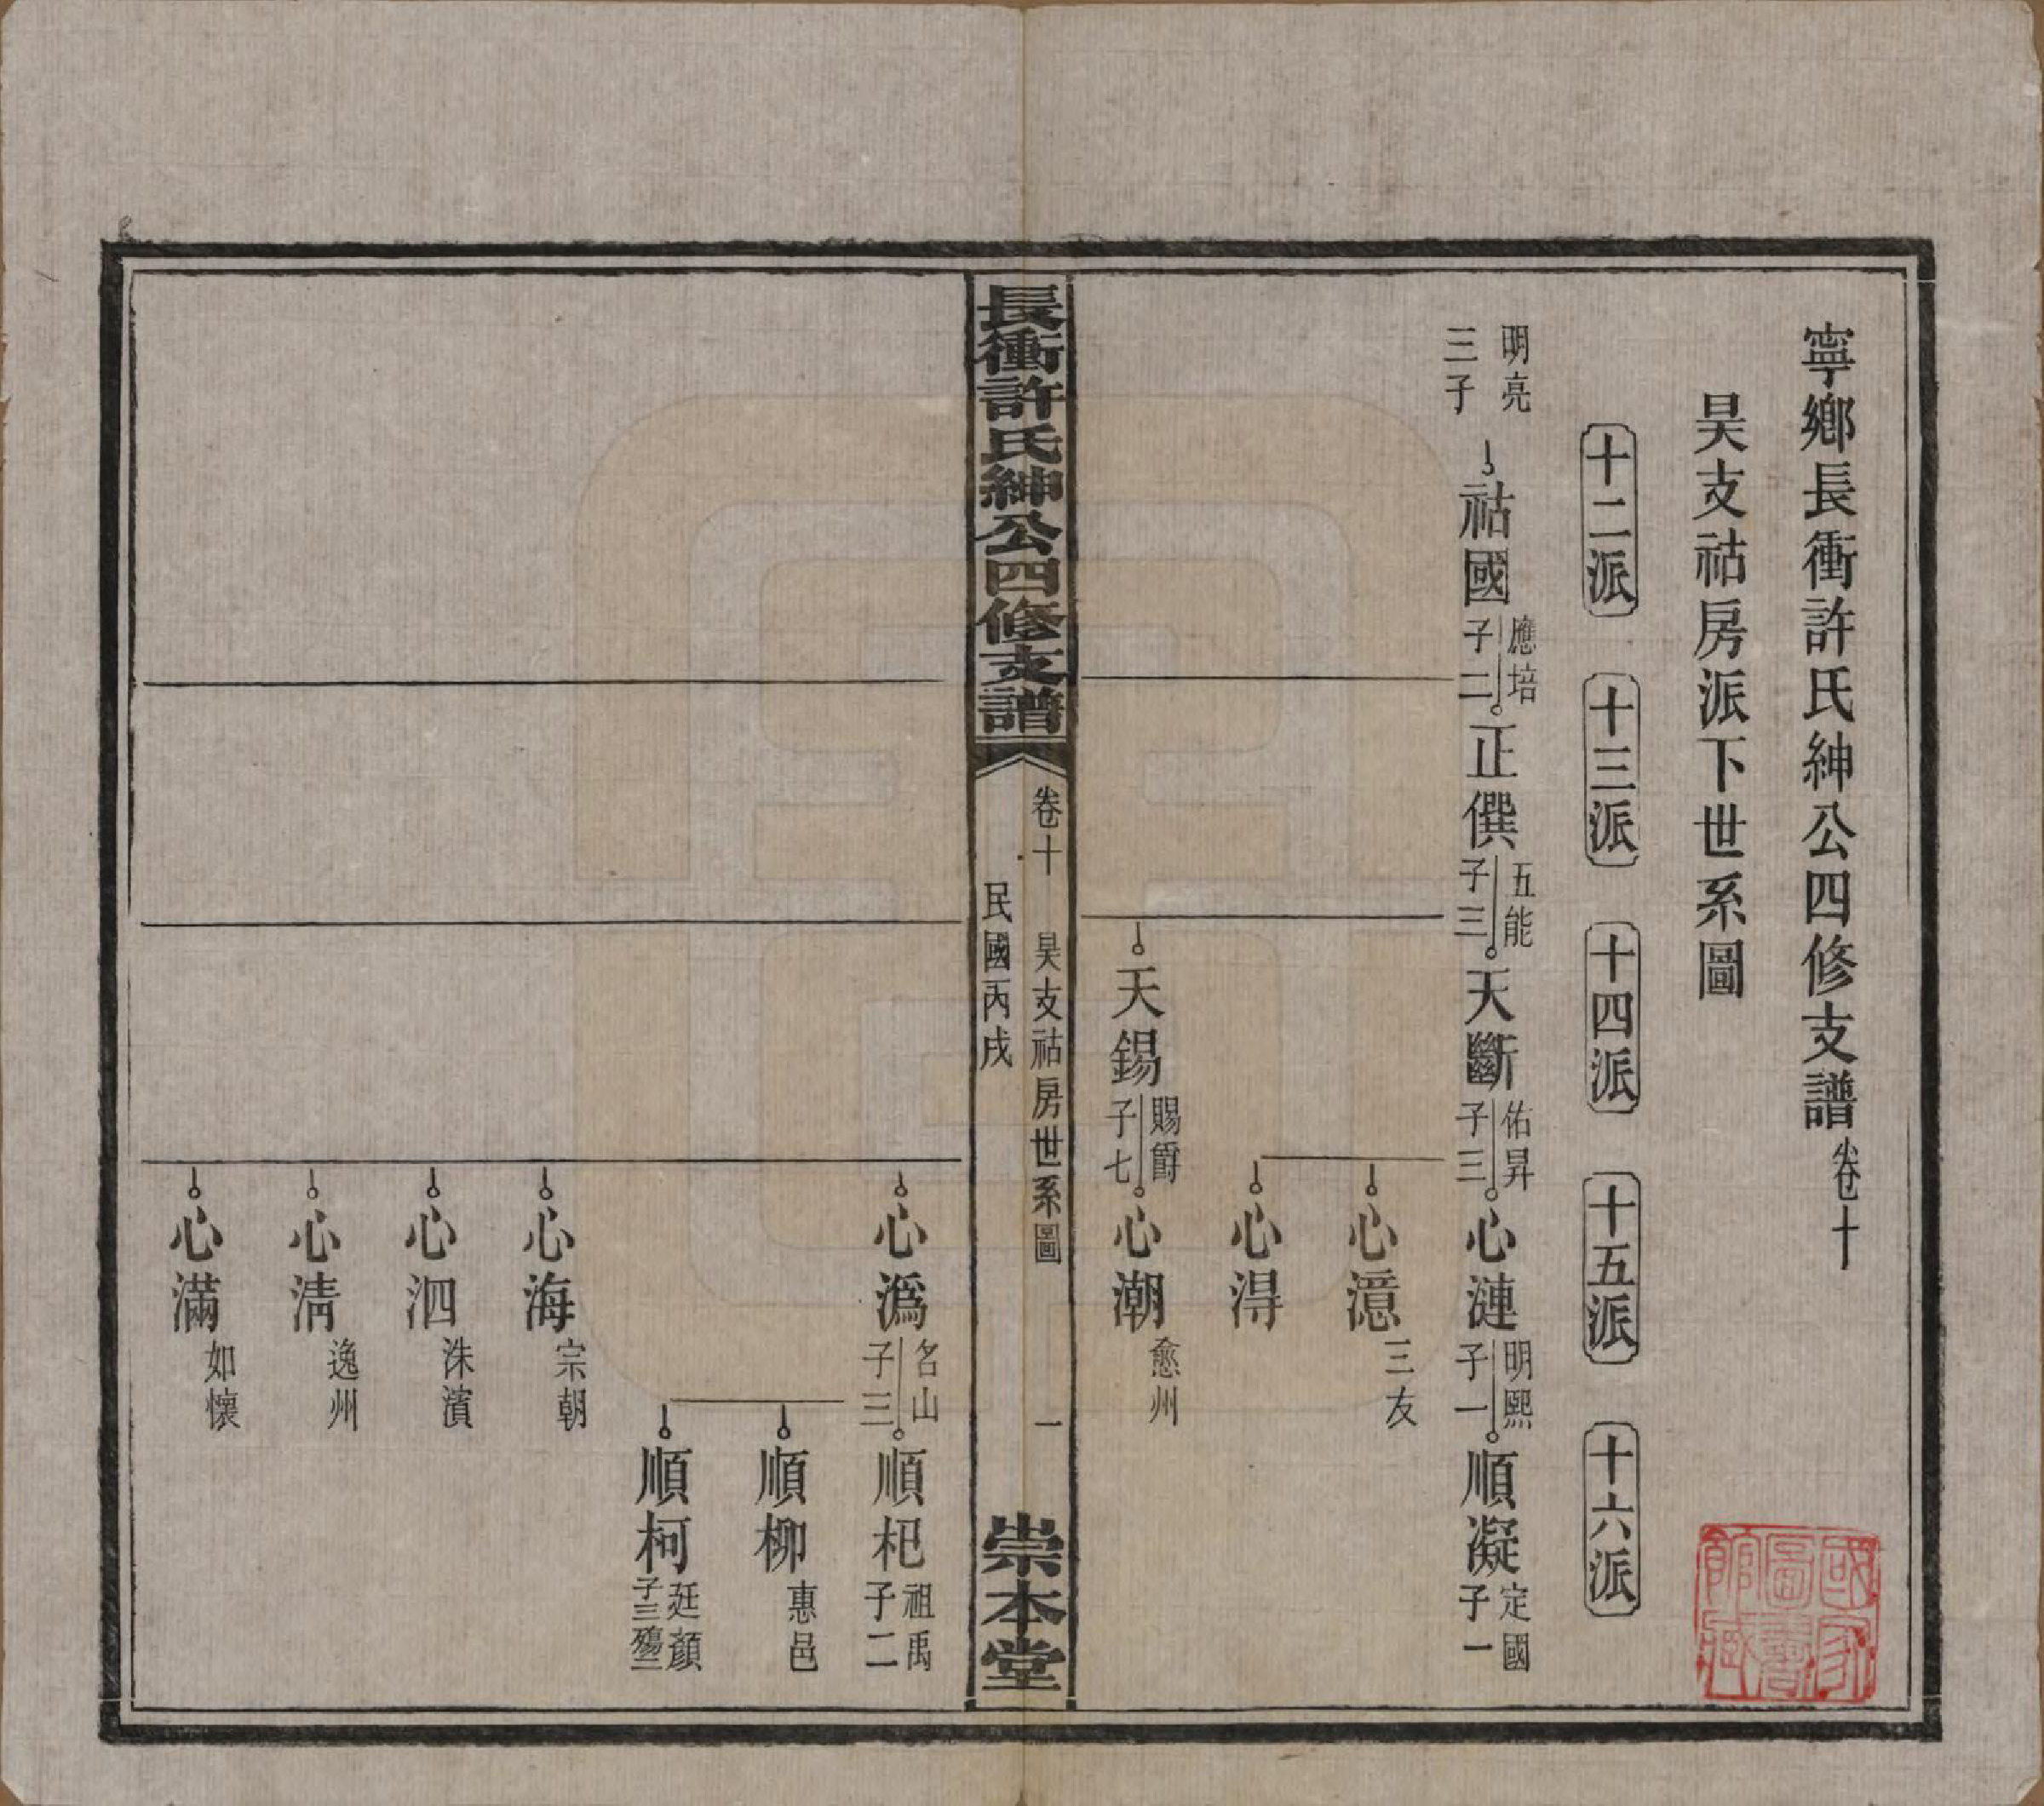 寧鄉長衝許氏紳公四修支譜卷十
昊支祜房派下世系圖
十二派
十三派
十四派
十五派
十六派
明亮
三子
祜國
應培
子二
正僎
五能
子三
天斷
佑昇
子三
心漣
明熙
子一
順凝
定國
子一
心澺
三友
心淂
天錫
賜爵
子七
心潮
愈州
長衝許氏紳公四修支譜
卷十
昊支祜房世系圖
一
民國丙戌
崇本堂
心溈
名山
子三
順杞
祖禹
子二
順柳
惠邑
順柯
廷顏
子三殤二
心海
宗朝
心泗
洙濱
心淸
逸州
心滿
如懷
國家
圖書
館藏